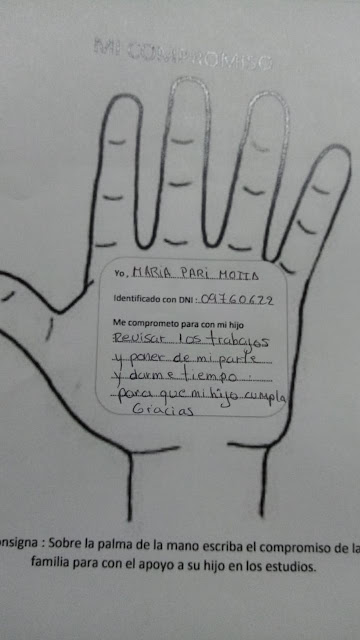 MI COMPROMISO
Yo, MARIA PARI MOTTA
Identificado con DNI: 09760622
Me comprometo para con mi hijo
Revisar los trabajos
y poner de mi parte
y darme tiempo
para que mi hijo cumpla
Gracias
onsigna : Sobre la palma de la mano escriba el compromiso de la
familia para con el apoyo a su hijo en los estudios.